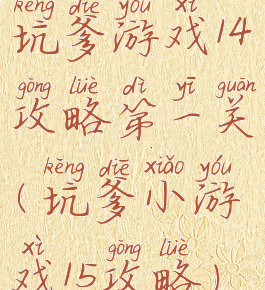 kēng diē yóu xì
坑爹游戏14
gōng lüè dì yī guān
攻略第一关
kēng diē xiǎo yóu
(坑爹小游
xì gōng lüè
戏15攻略)